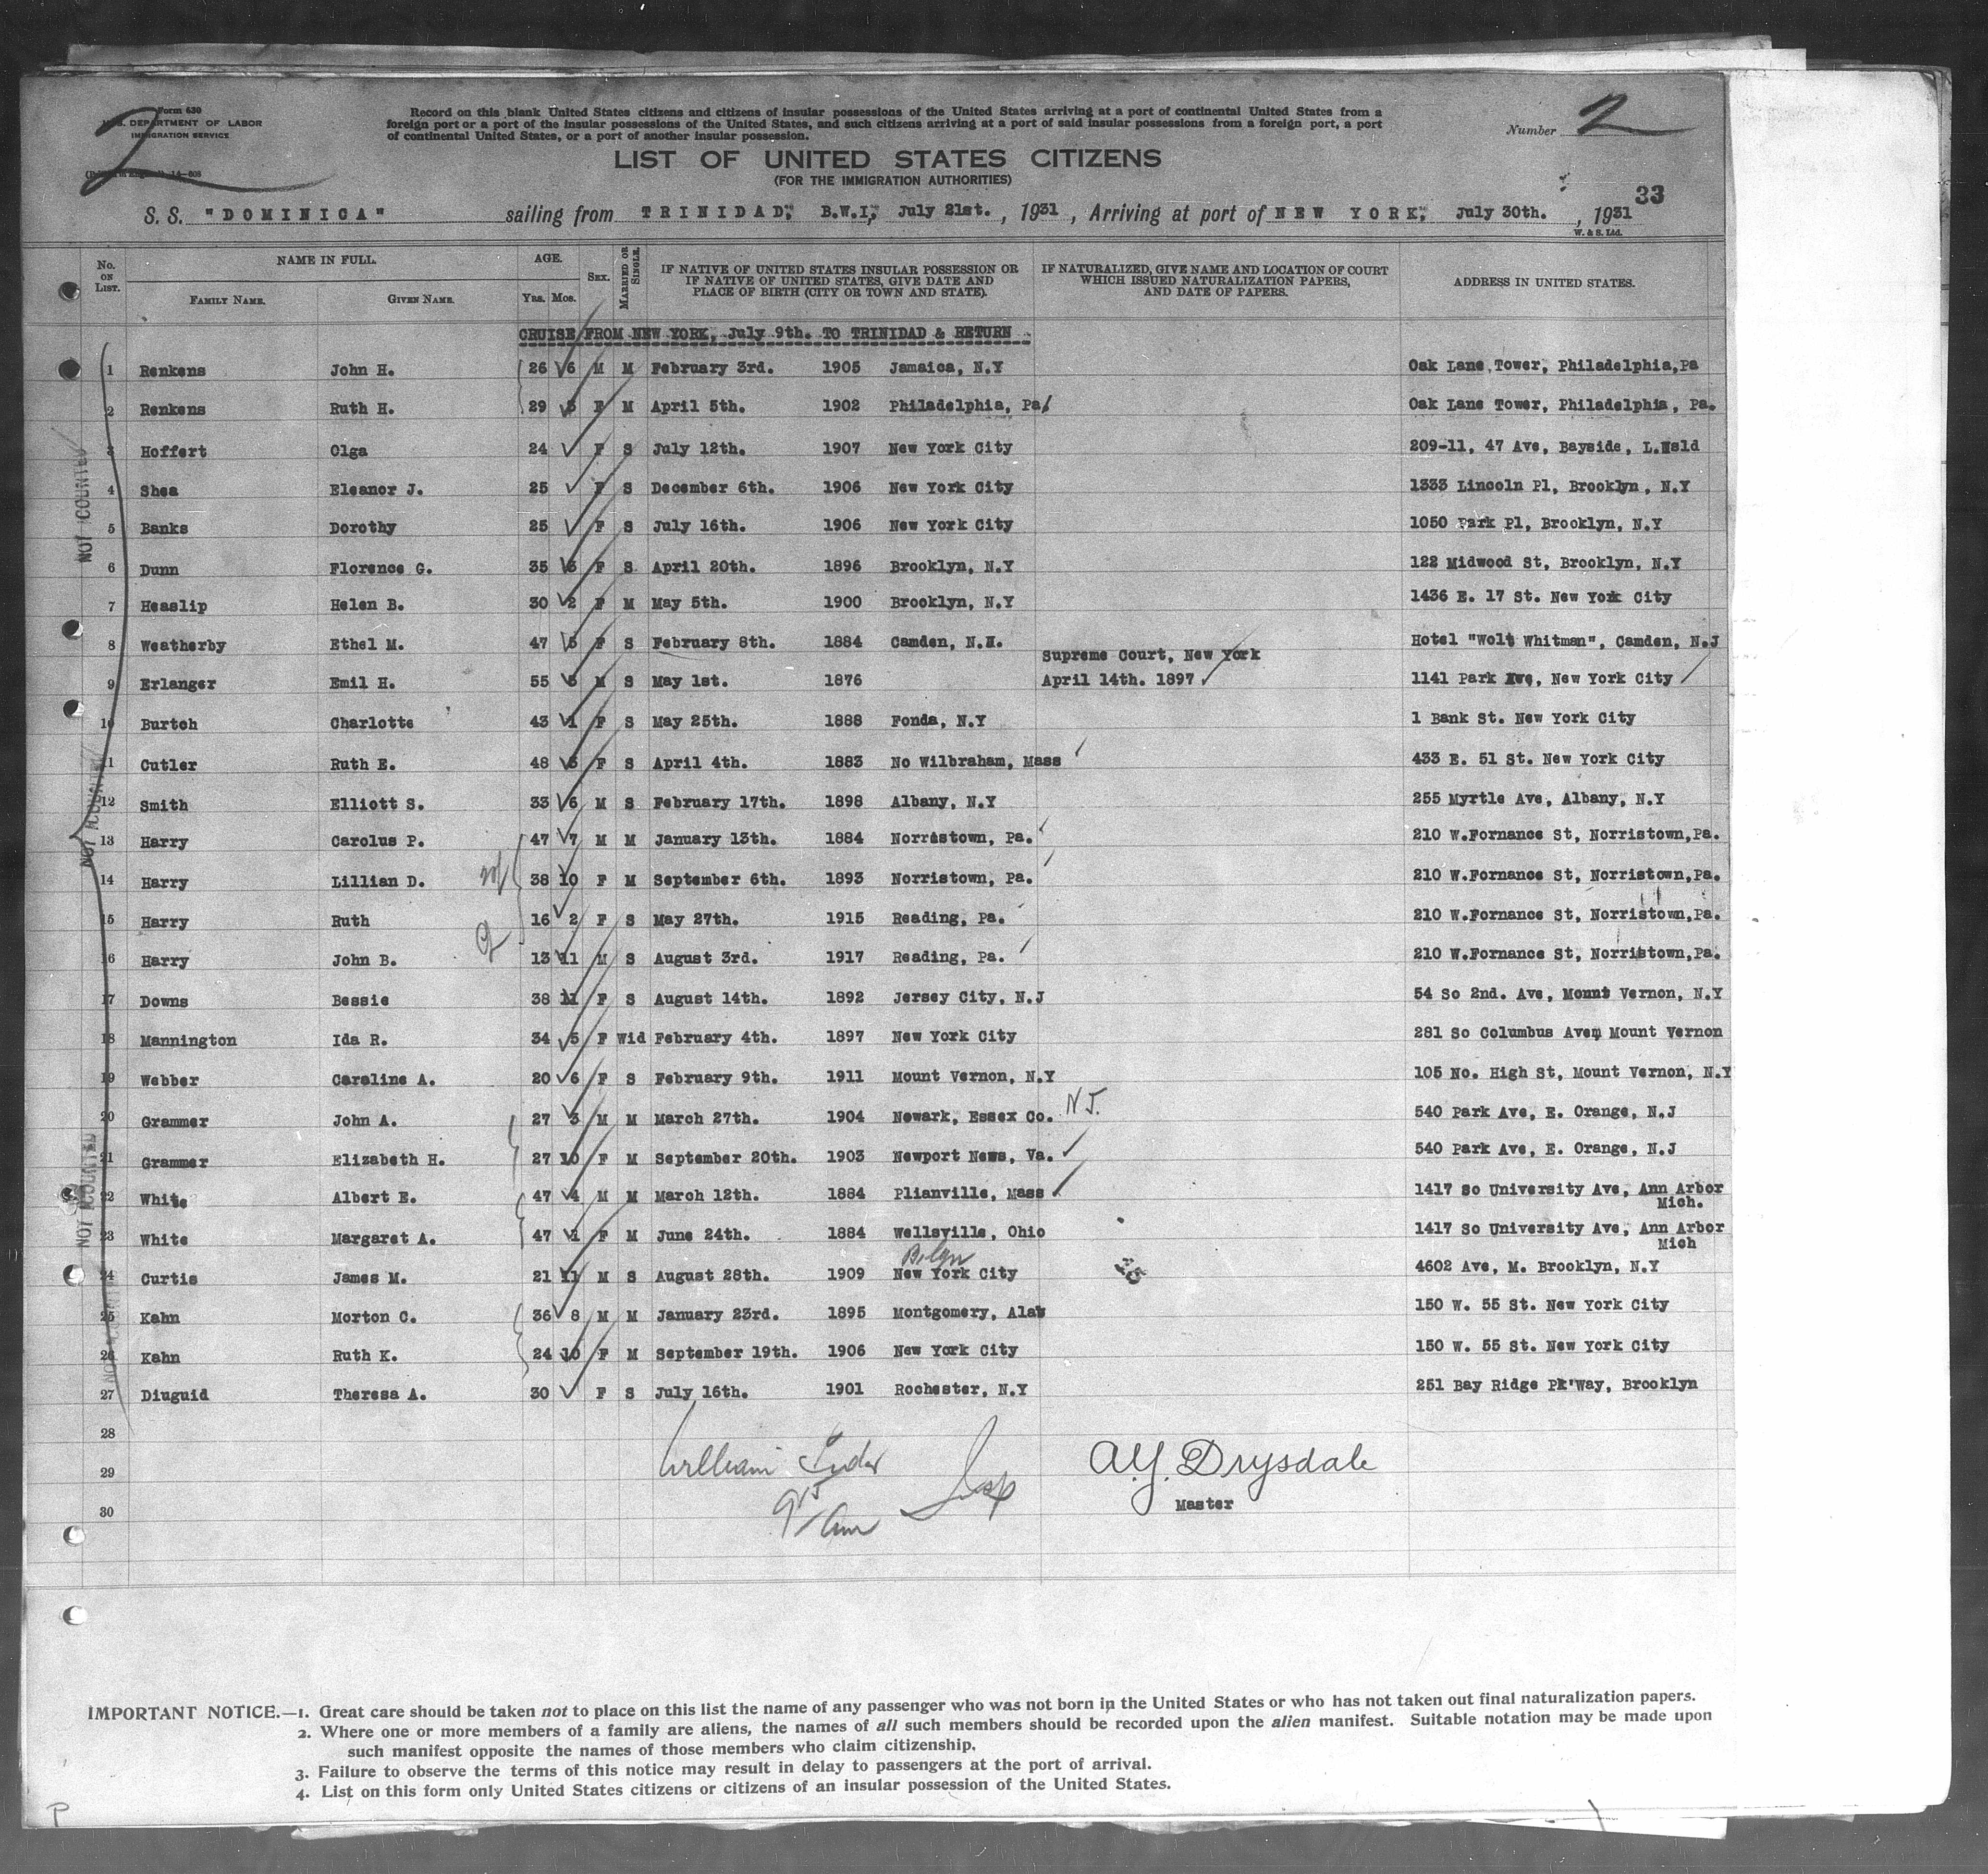 Form 630
U.S. DEPARTMENT OF LABOR
IMMIGRATION SERVICE
2
Record on this blank United States citizens and citizens of insular possessions of the United States arriving at a port of continental United States from a
foreign port or a port of the insular possessions of the United States, and such citizens arriving at a port of said insular possessions from a foreign port, a port
of continental United States, or a port of another insular possession.
Number 2
LIST OF UNITED STATES CITIZENS
(FOR THE IMMIGRATION AUTHORITIES)
33
S. S. "DOMINICA" sailing from TRINIDAD, B.W.I, July 21st. , 1931 , Arriving at port of NEW YORK, July 30th. , 1931
W. & S. Ltd.
No. ON LIST. NAME IN FULL. FAMILY NAME. GIVEN NAME. AGE. Yrs. Mos. SEX. MARRIED OR SINGLE. IF NATIVE OF UNITED STATES INSULAR POSSESSION OR IF NATIVE OF UNITED STATES, GIVE DATE AND PLACE OF BIRTH (CITY OR TOWN AND STATE). IF NATURALIZED, GIVE NAME AND LOCATION OF COURT WHICH ISSUED NATURALIZATION PAPERS, AND DATE OF PAPERS. ADDRESS IN UNITED STATES.
CRUISE FROM NEW YORK, July 9th. TO TRINIDAD & RETURN
1 Renkens John H. 26 6 M M February 3rd. 1905 Jamaica, N.Y Oak Lane Tower, Philadelphia,Pa
2 Renkens Ruth H. 29 3 F M April 5th. 1902 Philadelphia, Pa. Oak Lane Tower, Philadelphia, Pa.
3 Hoffert Olga 24 F S July 12th. 1907 New York City 209-11, 47 Ave, Bayside, L.Wsld
4 Shea Eleanor J. 25 F S December 6th. 1906 New York City 1333 Lincoln Pl, Brooklyn, N.Y
5 Banks Dorothy 25 F S July 16th. 1906 New York City 1050 Park Pl, Brooklyn, N.Y
6 Dunn Florence G. 35 3 F S April 20th. 1896 Brooklyn, N.Y 122 Midwood St, Brooklyn, N.Y
7 Heaslip Helen B. 30 2 F M May 5th. 1900 Brooklyn, N.Y 1436 E. 17 St. New York City
8 Weatherby Ethel M. 47 5 F S February 8th. 1884 Camden, N.H. Hotel "Wolt Whitman", Camden, N.J
Supreme Court, New York
9 Erlanger Emil H. 55 3 M S May 1st. 1876 April 14th. 1897 1141 Park Ave, New York City
10 Burtch Charlotte 43 1 F S May 25th. 1888 Fonda, N.Y 1 Bank St. New York City
11 Cutler Ruth E. 48 3 F S April 4th. 1883 No Wilbraham, Mass 433 E. 51 St. New York City
12 Smith Elliott S. 33 6 M S February 17th. 1898 Albany, N.Y 255 Myrtle Ave, Albany, N.Y
13 Harry Carolus P. 47 7 M M January 13th. 1884 Norristown, Pa. 210 W.Fornance St, Norristown,Pa.
14 Harry Lillian D. 38 10 F M September 6th. 1893 Norristown, Pa. 210 W.Fornance St, Norristown,Pa.
15 Harry Ruth 16 2 F S May 27th. 1915 Reading, Pa. 210 W.Fornance St, Norristown,Pa.
16 Harry John B. 13 11 M S August 3rd. 1917 Reading, Pa. 210 W.Fornance St, Norristown,Pa.
17 Downs Bessie 38 11 F S August 14th. 1892 Jersey City, N.J 54 So 2nd. Ave, Mount Vernon, N.Y
18 Mannington Ida R. 34 5 F Wid February 4th. 1897 New York City 281 So Columbus Ave, Mount Vernon
19 Webber Caroline A. 20 6 F S February 9th. 1911 Mount Vernon, N.Y 105 No. High St, Mount Vernon, N.Y
20 Grammer John A. 27 3 M M March 27th. 1904 Newark, Essex Co. N.J. 540 Park Ave, E. Orange, N.J
21 Grammer Elizabeth H. 27 10 F M September 20th. 1903 Newport News, Va. 540 Park Ave, E. Orange, N.J
22 White Albert E. 47 4 M M March 12th. 1884 Plianville, Mass 1417 So University Ave, Ann Arbor
Mich.
23 White Margaret A. 47 1 F M June 24th. 1884 Wellsville, Ohio 1417 So University Ave, Ann Arbor
Mich
Bklyn
24 Curtis James M. 21 11 M S August 28th. 1909 New York City 4602 Ave, M. Brooklyn, N.Y
25 Kahn Morton C. 36 8 M M January 23rd. 1895 Montgomery, Ala 150 W. 55 St. New York City
26 Kahn Ruth K. 24 10 F M September 19th. 1906 New York City 150 W. 55 St. New York City
27 Diuguid Theresa A. 30 F S July 16th. 1901 Rochester, N.Y 251 Bay Ridge Pk'Way, Brooklyn
28
29
30
NOT COUNTED
NOT COUNTED
NOT COUNTED
William
Insp
9 15 am
A.Y. Drysdale
Master
IMPORTANT NOTICE.—1. Great care should be taken not to place on this list the name of any passenger who was not born in the United States or who has not taken out final naturalization papers.
2. Where one or more members of a family are aliens, the names of all such members should be recorded upon the alien manifest. Suitable notation may be made upon
such manifest opposite the names of those members who claim citizenship.
3. Failure to observe the terms of this notice may result in delay to passengers at the port of arrival.
4. List on this form only United States citizens or citizens of an insular possession of the United States.
P